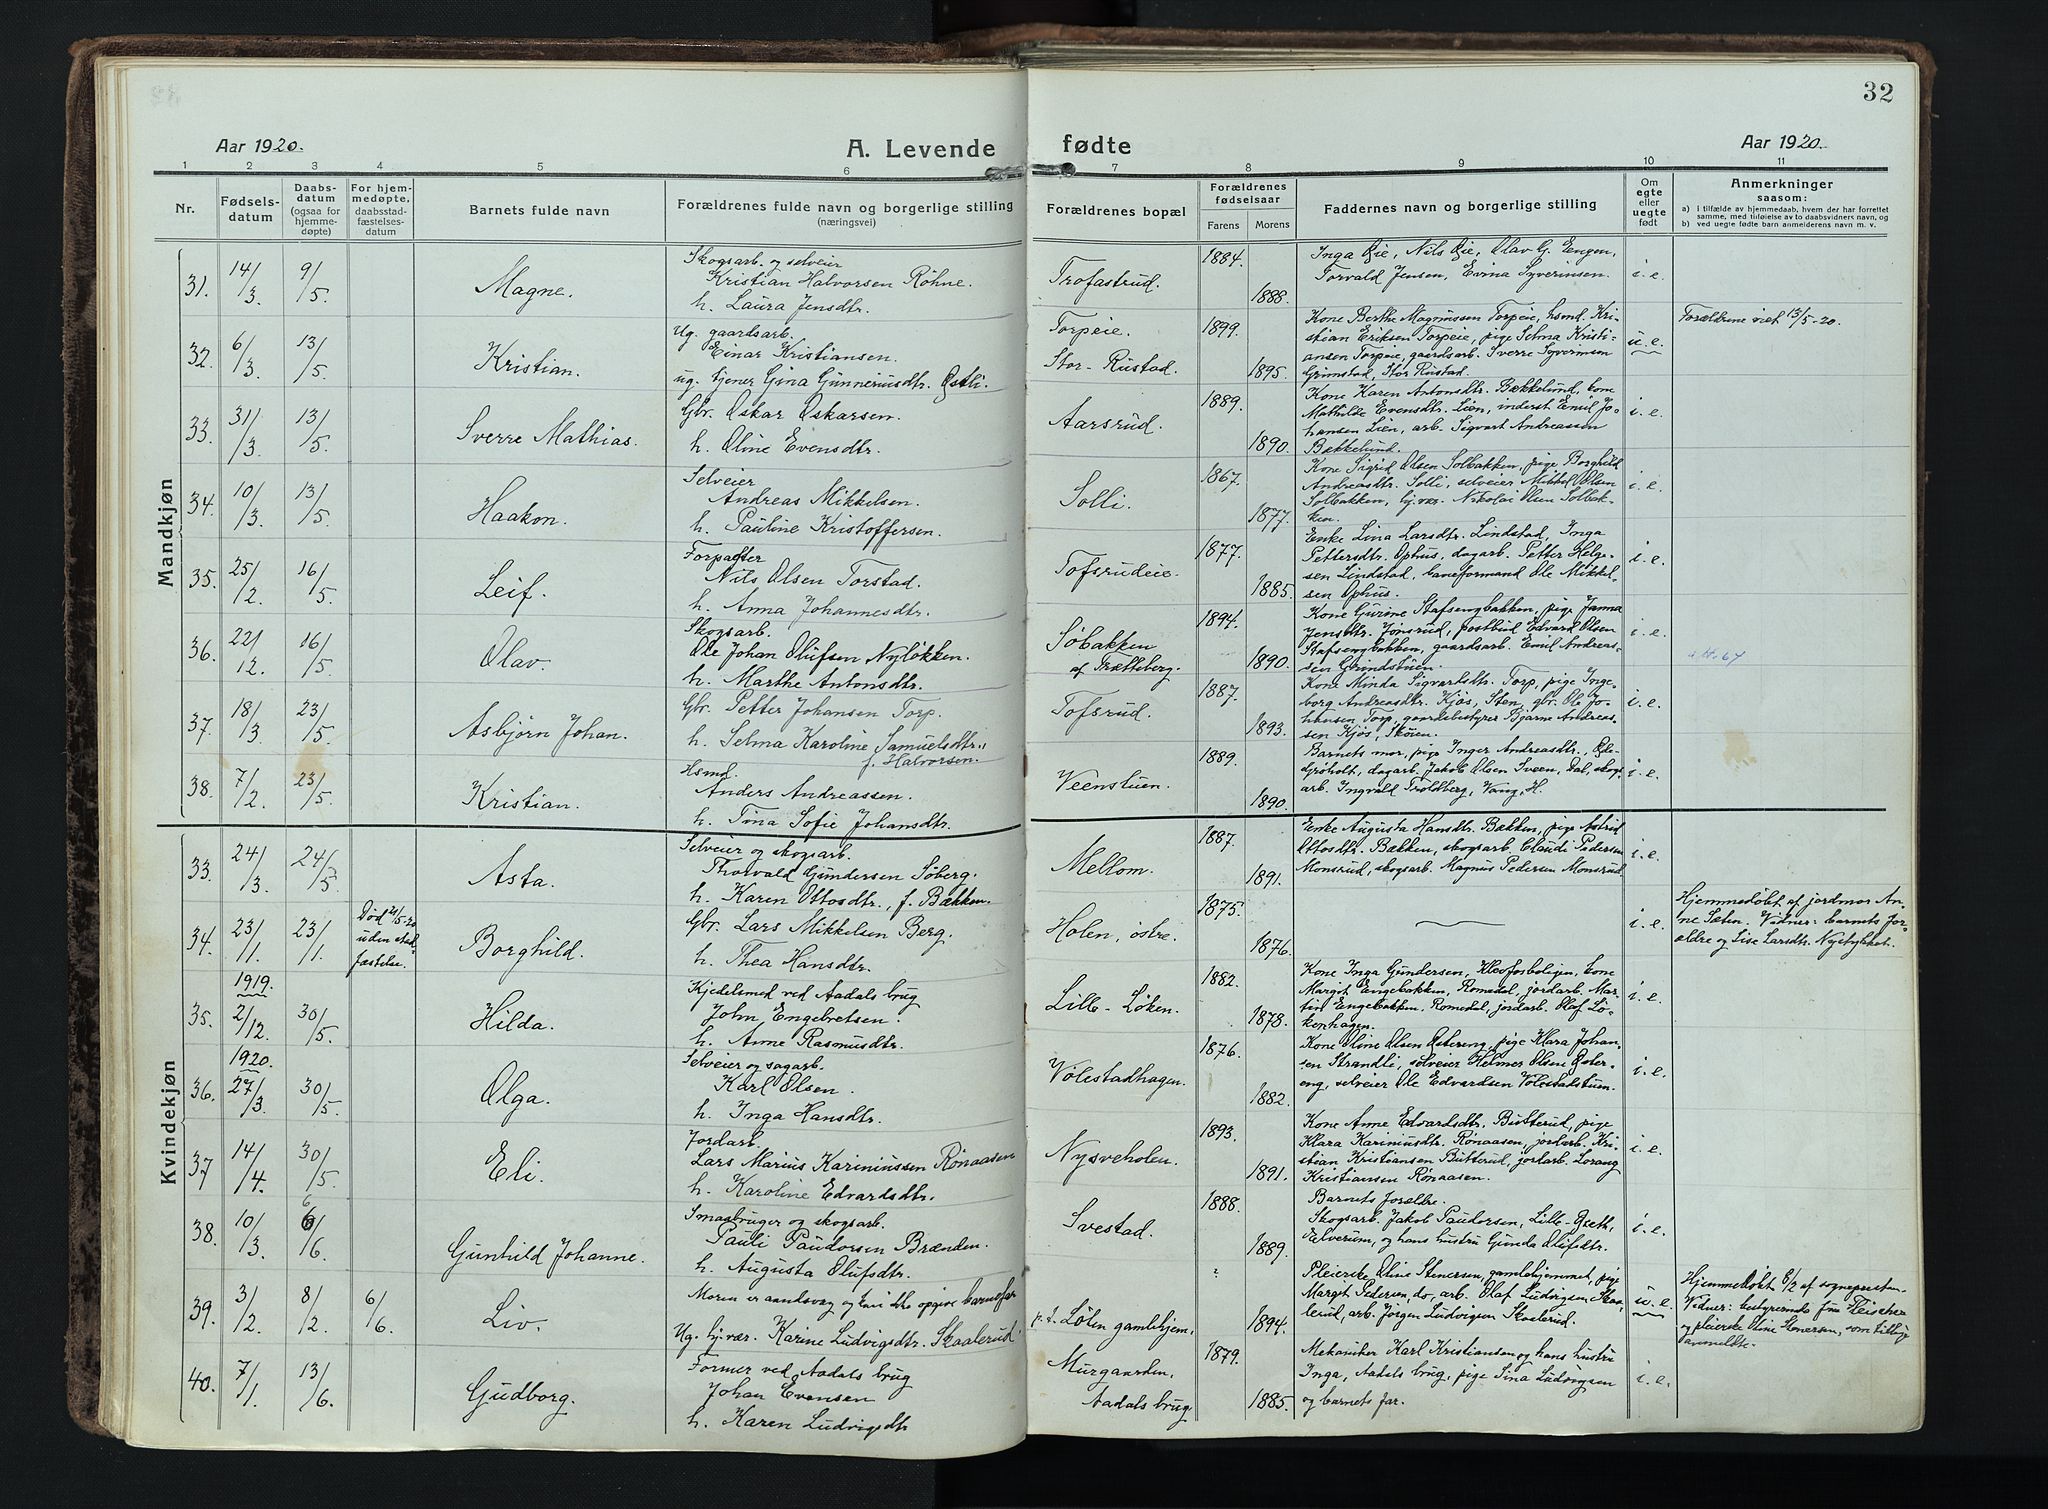 32
Aar 1920. A. Levende fødte Aar 1920.
1 2 3 4 5 6 7 8 9 10 11
Nr. Fødselsdatum Daabsdatum (ogsaa for hjemmedøpte) For hjemmedøpte, daabsstadfæstelsesdatum Barnets fulde navn Forældrenes fulde navn og borgerlige stilling (næringsvei) Forældrenes bopæl Forældrenes fødselsaar Farens Morens Faddernes navn og borgerlige stilling Om egte eller uegte født Anmerkninger saasom:
a) i tilfælde av hjemmedaab, hvem der har forrettet samme, med tilføielse av to daabsvidners navn, og
b) ved uegte fødte barn anmelderens navn m. v.
Mandkjøn
31. 14/3. 9/5. Magne.
Skogsarb. og selveier
Kristian Halvorsen Röhne.
h. Laura Jensdtr.
Trofastrud. 1884. 1888.
Inga Øie, Nils Øie, Olav G. Engen,
Torvald Jensen, Syverinsen. i. e.
32. 6/3. 13/5. Kristian.
Ug. gaardsarb.
Einar Kristiansen.
ug. tjener Gina Gunneriusdtr. Østli.
Torpeie.
Stor-Rustad. 1899. 1895.
Kone Berthe Magnussen Torpeie, hsmd. Kri-
stian Eriksen Torpeie, pige Selma Kristi-
ansen Torpeie, gaardsarb. Sverre Syverinsen
Grimstad, Stor Rustad. u. e.
Forældrene viet 13/5-20.
33. 31/3. 13/5. Sverre Mathias.
Gbr. Oskar Oskarsen.
h. Oline Evensdtr.
Aarsrud. 1889. 1890.
Kone Karen Antonsdtr. Bækkelund, kone
Mathilde Evensdtr. Lien, inderst Emil Jo-
hansen Lien, arb. Sigvart Andreassen
Bækkelund. i. e.
34. 10/3. 13/5. Haakon.
Selveier
Andreas Mikkelsen.
h. Pauline Kristoffersen.
Solli. 1867. 1877.
Kone Sigrid Olsen Solbakken, pige Borghild
Andreasdtr. Solli, selveier Mikkel Olsen
Solbakken, Nikolai Olsen Solbak-
ken. i. e.
35. 25/2. 16/5. Leif.
Forpagter
Nils Olsen Torstad.
h. Anna Johannesdtr.
Tofsrudeie. 1877. 1885.
Enke Lina Larsdtr. Lindstad, Inga
Pettersdtr. Ophus, dagarb. Petter Helge-
sen Lindstad, baneformand Ole Mikkel-
sen Ophus. i. e.
36. 22/12. 16/5. Olav.
Skogsarb.
Ole Johan Olufsen Nyløkken.
h. Marthe Antonsdtr.
Søbakken
af Trætteberg. 1894. 1890.
Kone Gurine Stafsengbakken, pige Janna
Jensdtr. Jønsrud, postbud Edvard Olsen
Stafsengbakken, gaardsarb. Emil Andreas-
sen Grundstuen. i. e.
37. 18/3. 23/5. Asbjørn Johan.
Gbr. Petter Johansen Torp.
h. Selma Karoline Samuelsdtr.,
f. Halvorsen.
Tofsrud. 1887. 1893.
Kone Minda Sigvartsdtr. Torp, pige Inge-
borg Andreasdtr. Kjøs, Sten, gbr. Ole Jo-
hansen Torp, gaardsbestyrer Bjarne Andreas-
sen Kjøs, Skøien. i. e.
38. 7/2. 23/5. Kristian.
Hsmd.
Anders Andreassen.
h. Tina Sofie Johansdtr.
Veenstuen. 1889. 1890.
Barnets mor, pige Inger Andreasdtr., Ode-
Grøholt, dagarb. Jakob Olsen Sveen, Dal, skogs-
arb. Ingvald Troldberg, Vang, H. i. e.
Kvindekjøn
33. 24/3. 24/5. Asta.
Selveier og skogsarb.
Thorvald Gundersen Søberg.
h. Karen Ottosdtr., f. Bækken.
Mellom. 1887. 1891.
Enke Augusta Hansdtr. Bækken, pige Astrid
Ottosdtr. Bækken, skogsarb. Claudi Pedersen
Monsrud, skogsarb. Magnus Pedersen Monsrud. i. e.
34. 23/1. 23/1. Død 21/5-20
uden stad-
fæstelse. Borghild.
Gbr. Lars Mikkelsen Berg.
h. Thea Hansdtr.
Holen, østre. 1875. 1876. i. e.
Hjemmedøbt af jordmor An-
ne Sæten. Vidner: barnets for-
ældre og Lise Larsdtr.
1919.
35. 2/12. 30/5. Hilda.
Kjedelsmed ved Aadals brug
John Engebretsen.
h. Anne Rasmusdtr.
Lille-Løken. 1882. 1878.
Kone Inga Gundersen, Klevfosboligen, kone
Margit Engebakken, Romedal, jordarb. Mar-
tin Engebakken, Romedal, jordarb. Olaf Lø-
kenhagen. i. e.
1920.
36. 27/3. 30/5. Olga.
Selveier og sagarb.
Karl Olsen.
h. Inga Hansdtr.
Volestadhagen. 1876. 1882.
Kone Oline Olsen Østereng, pige Klara Johan-
sen Strandli, selveier Helmer Olsen Øster-
eng, selveier Ole Edvardsen Volestadstuen. i. e.
37 14/4. 30/5. Eli.
Jordarb.
Lars Marius Kariniussen Rønaasen
h. Karoline Edvardsdtr.
Nysveholen. 1893. 1891.
Kone Anne Edvardsdtr. Butterud, pige
Klara Kariniusdtr. Rønaasen, jordarb. Kri-
stian Kristiansen Butterud, jordarb. Lorang
Kristiansen Rønaasen. i. e.
38. 10/3. 6/6. Gunhild Johanne.
Smaabruger og skogsarb.
Pauli Paudorsen Brænden.
h. Augusta Olufsdtr.
Svestad. 1888. 1889.
Barnets forældre.
Skogsarb. Jakob Paudorsen, Lille-Grøth,
Elverum, og hans hustru Gunda Olufsdtr. i. e.
39. 3/2. 8/2. 6/6. Liv.
Moren er aandsvag og kan ikke opgive barnefar
Ug. Karine Ludvigsdtr. Skaalerud.
p. t. Løten gamlehjem. ? 1894.
Pleierske Oline Stenersen, gamlehjemmet, pige
Margit Pedersen, do, arb. Olaf Ludvigsen Skaa-
lerud, arb. Jørgen Ludvigsen Skaalerud. u. e.
Hjemmedøbt 8/2 af sognepresten.
Vidner: bestyrerinde frk. Fleischer
og pleierske Oline Stenersen, som tillige
anmeldte.
40. 7/1. 13/6. Gudborg.
Former ved Aadals brug
Johan Evensen
h. Karen Ludvigsdtr
Murgaarden,
Aadals brug. 1879. 1885.
Mekaniker Karl Kristiansen og hans hustru
Inga, Aadals brug, pige Sina Ludvigsen
og barnets far. i. e.